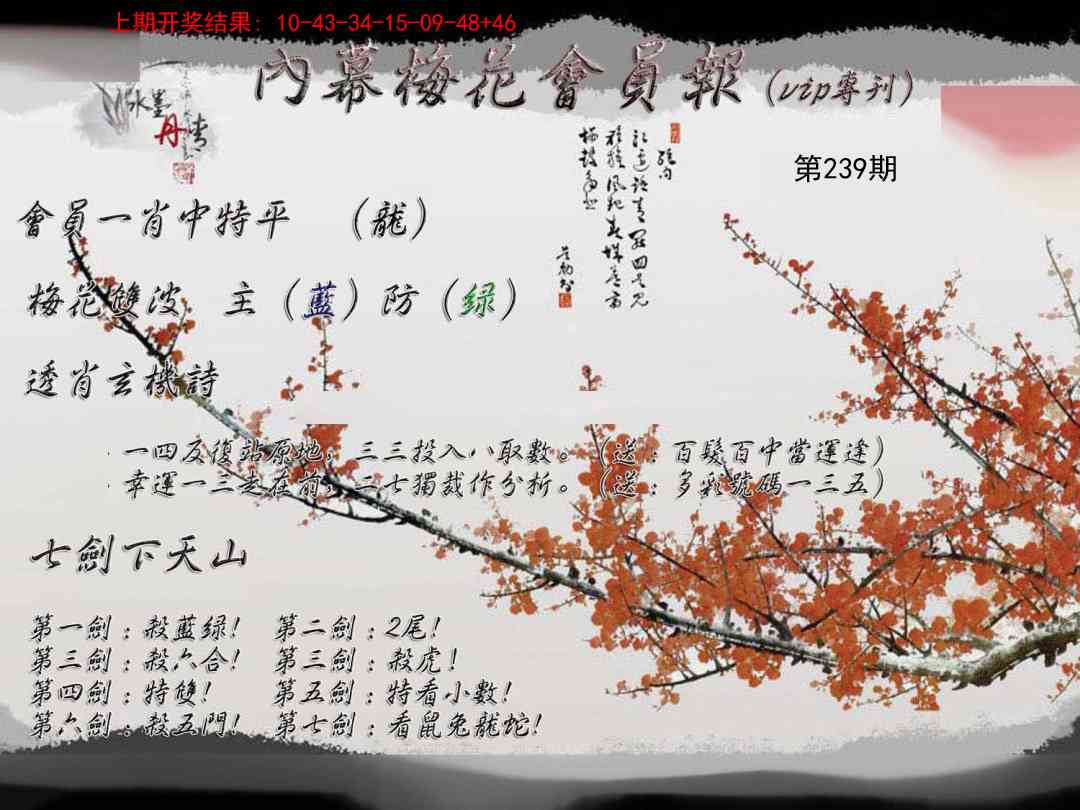 上期开奖结果: 10-43-34-15-09-48+46
內幕梅花會員報(vip專刊)
水墨
丹青
第239期
會員一肖中特平 (龍)
梅花雙波 主(藍)防(绿)
透肖玄機詩
一四反復站原地，三三投入八取數。(送:百髮百中當運達)
幸運一三走在前，二七獨裁作分析。(送:多彩號碼一三五)
七劍下天山
第一劍:殺藍绿! 第二劍:2尾!
第三劍:殺六合! 第三劍:殺虎!
第四劍:特雙! 第五劍:特看小數!
第六劍:殺五門! 第七劍:看鼠兔龍蛇!